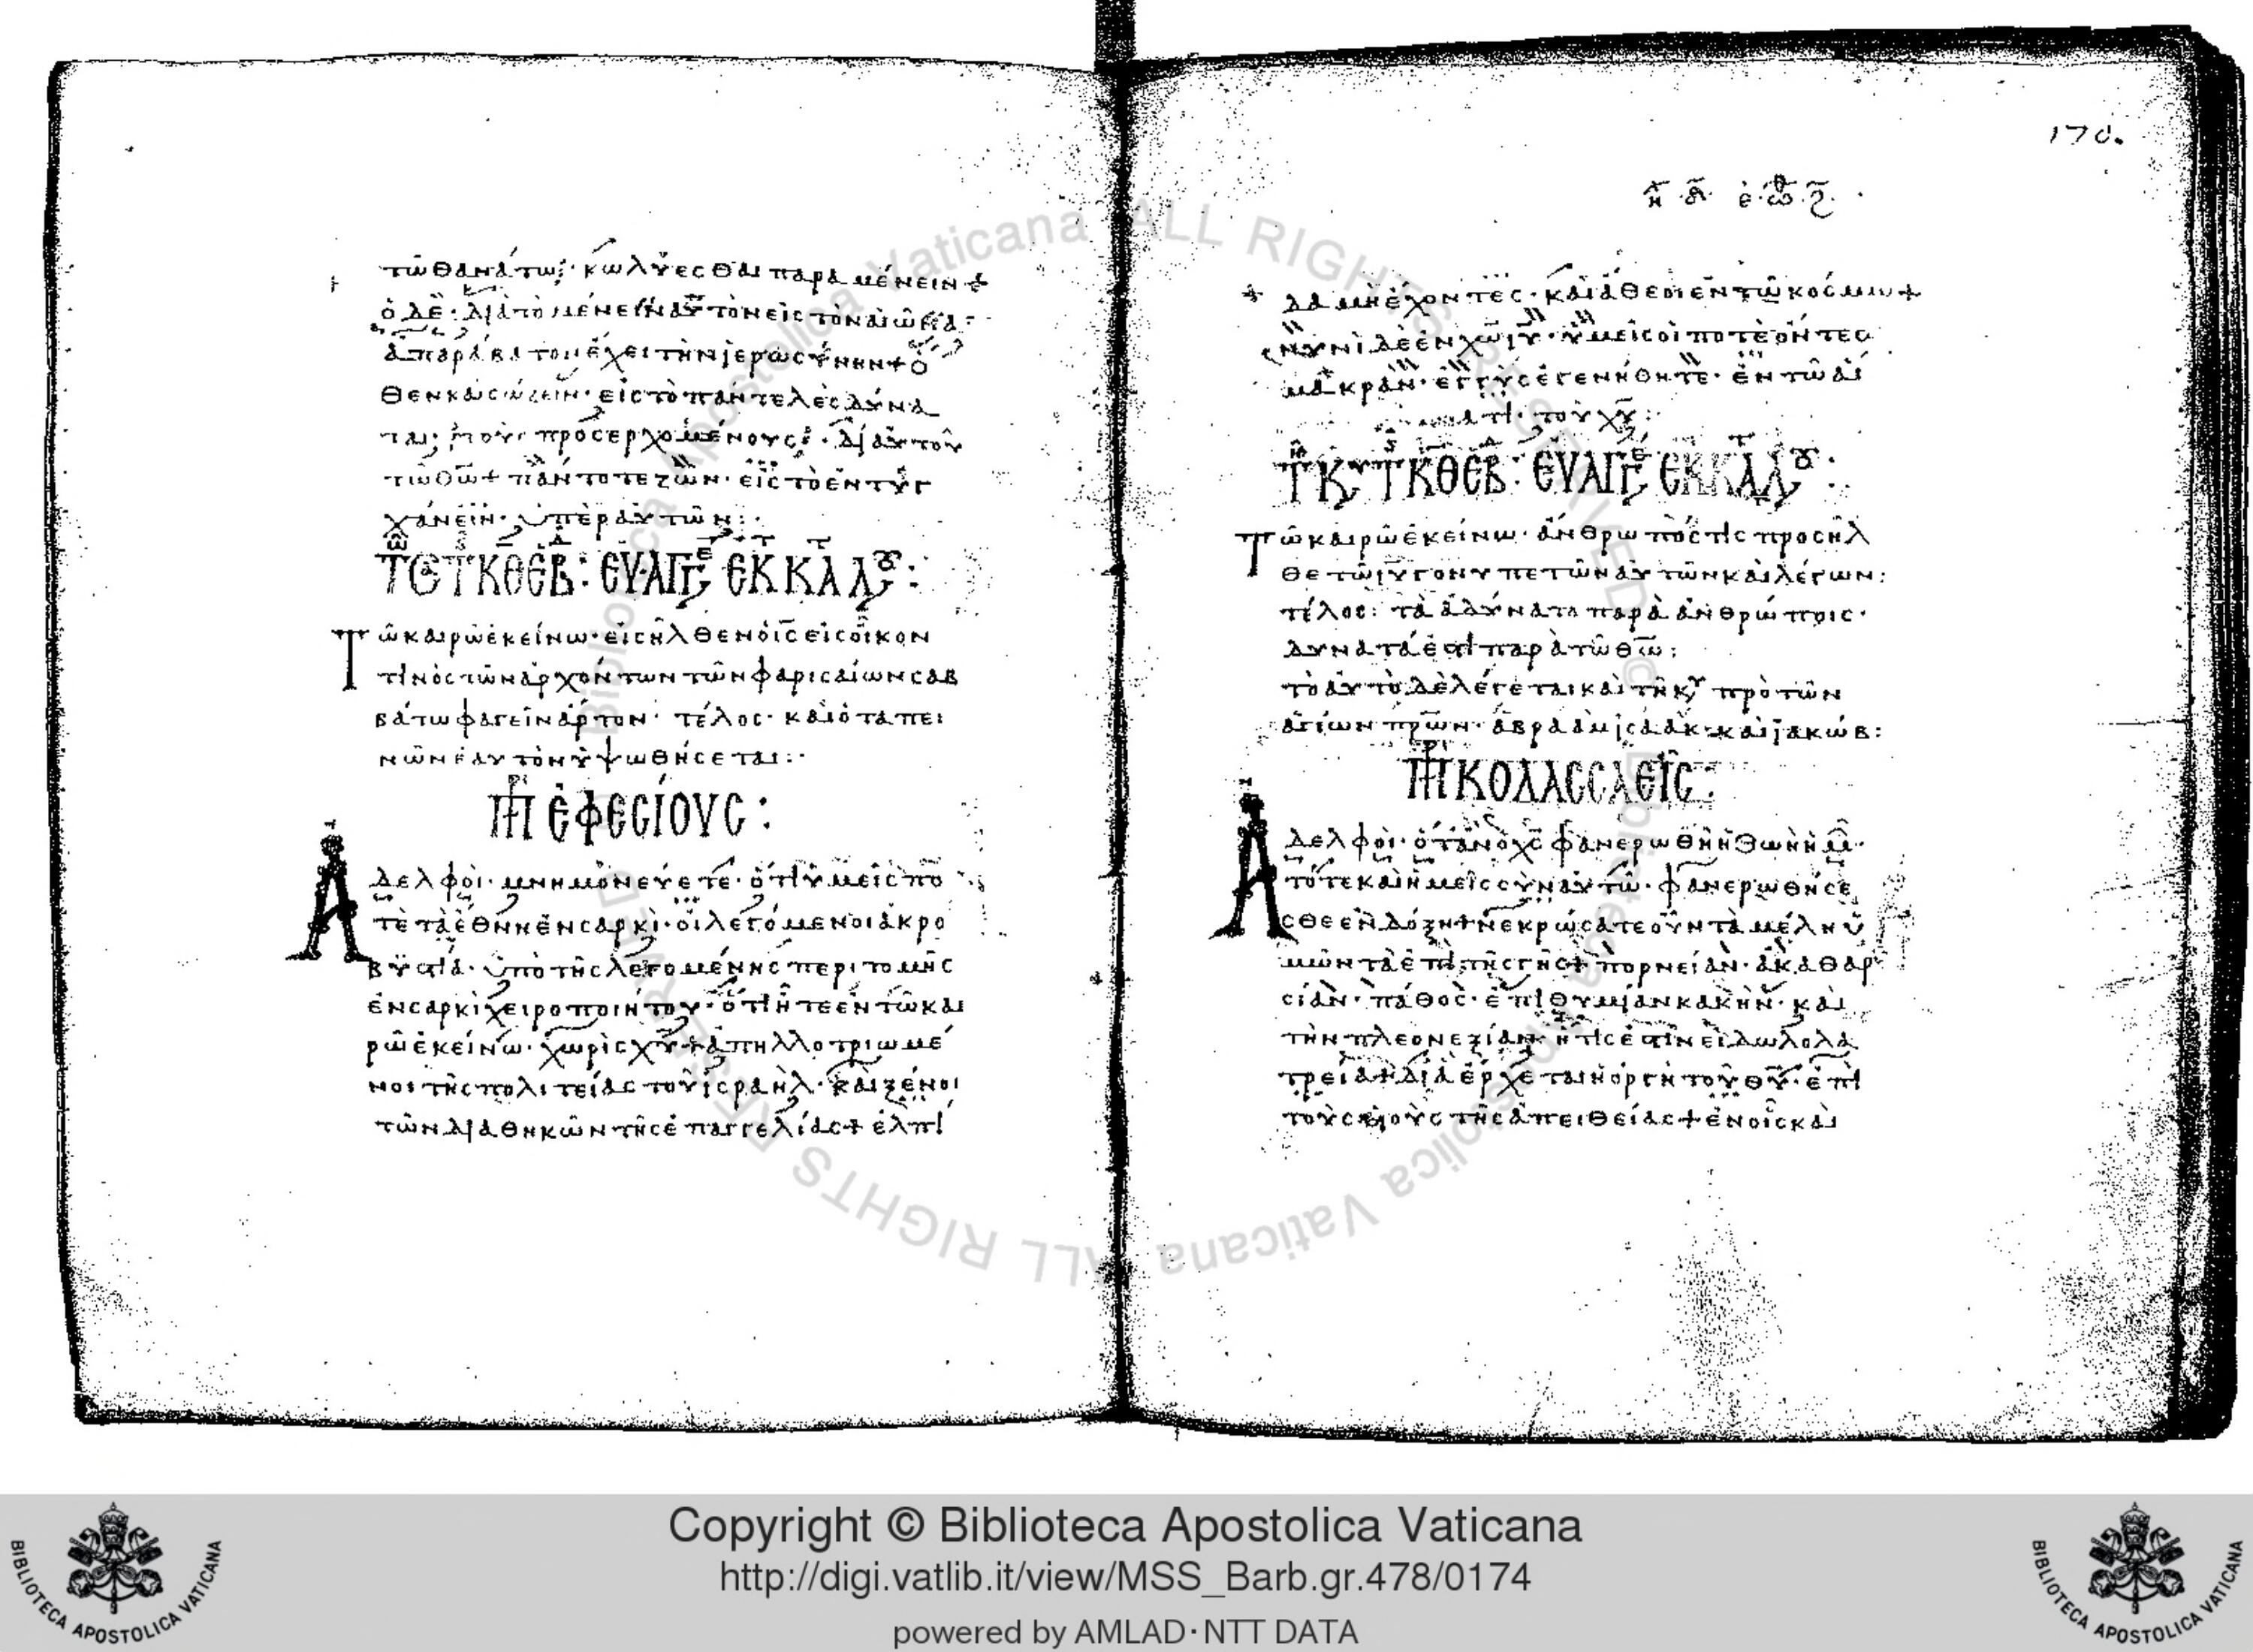 τῶ θανάτωι· κωλύεσθαι παραμένειν +
ὁ δὲ· διὰ τὸ μένειν αὐτὸν εἰς τὸν αἰῶνα·
ἀπαράβατον ἔχει τὴν ἱερωσύνην + ὅ
θεν καὶ σώζειν· εἰς τὸ παντελὲς δύνα
ται· τοὺς προσερχομένους· δι αὐτοῦ
τῶ θῶ + πάντοτε ζῶν· εἰς τὸ ἐντυγ
χάνειν· ὑπὲρ αὐτῶν:·
ΕΥΑΓΓΕ ΕΚ Κ ΛΟΥ:
Τῶ καιρῶ ἐκείνω· εἰσῆλθεν ὁ ις εἰς οἶκον
τινὸς τῶν ἀρχόντων τῶν φαρισαίων σαβ
βάτω φαγεῖν ἄρτον· τέλος· καὶ ὁ ταπει
νῶν ἑαυτὸν ὑψωθήσεται:·
ΠΡ ἘΦΕCΊΟΥC:
Ἀδελφοὶ· μνημονεύετε· ὅτι ὑμεῖς πο
τὲ τὰ ἔθνη ἐν σαρκὶ· οἱ λεγόμενοι ἀκρο
βυστία· ὑπὸ τῆς λεγομένης περιτομῆς
ἐν σαρκὶ χειροποιήτου· ὅτι ἦτε ἐν τῶ και
ρῶ ἐκείνω· χωρὶς χυ + ἀπηλλοτριωμέ
νοι τῆς πολιτείας τοῦ ισραὴλ· καὶ ξένοι
τῶν διαθηκῶν τῆς ἐπαγγελίας + ἐλπί
170.
+ δα μὴ ἔχοντες· καὶ ἄθεοι ἐν τῶ κόσμω +
νυνὶ δὲ ἐν χω ιυ· ὑμεῖς οἱ ποτὲ ὄντες
μακρὰν· ἐγγὺς ἐγενήθητε· ἐν τῶ αἵ
ματι· τοῦ χυ:
ΕΥΑΓΓΕ ΕΚ Κ ΛΟΥ:
Τῶ καιρῶ ἐκείνω· ἄνθρωπός τις προσῆλ
θε τῶ ιυ γονυπετῶν αὐτῶν καὶ λέγων:
τέλος: τὰ ἀδύνατα παρὰ ἀνθρώποις·
δυνατά ἐστι παρὰ τῶ θω:
τὸ αὐτὸ δὲ λέγεται καὶ τῆ κυ πρὸ τῶν
ἁγίων πρων· ἀβραὰμ ισαὰκ· καὶ ιακώβ:
ΠΡ ΚΟΛΑCCΑΕῖC:
Ἀδελφοὶ· ὅταν ὁ χς φανερωθῆ ἡ ζωὴ ἡμ·
τότε καὶ ἡμεῖς σὺν αὐτῶ· φανερωθήσε
σθε ἐν δόξη + νεκρώσατε οὖν τὰ μέλη ὑ
μῶν τὰ ἐπὶ τῆς γῆς + πορνείαν· ἀκαθαρ
σίαν· πάθος· ἐπιθυμίαν κακὴν· καὶ
τὴν πλεονεξίαν· ἥτις ἐστὶν εἰδωλολα
τρεία + δι ἃ ἔρχεται ἡ ὀργὴ τοῦ θυ· ἐπὶ
τοὺς υἱοὺς τῆς ἀπειθείας + ἐν οἷς καὶ
Copyright © Biblioteca Apostolica Vaticana
http://digi.vatlib.it/view/MSS_Barb.gr.478/0174
powered by AMLAD·NTT DATA
BIBLIOTECA APOSTOLICA VATICANA
BIBLIOTECA APOSTOLICA VATICANA